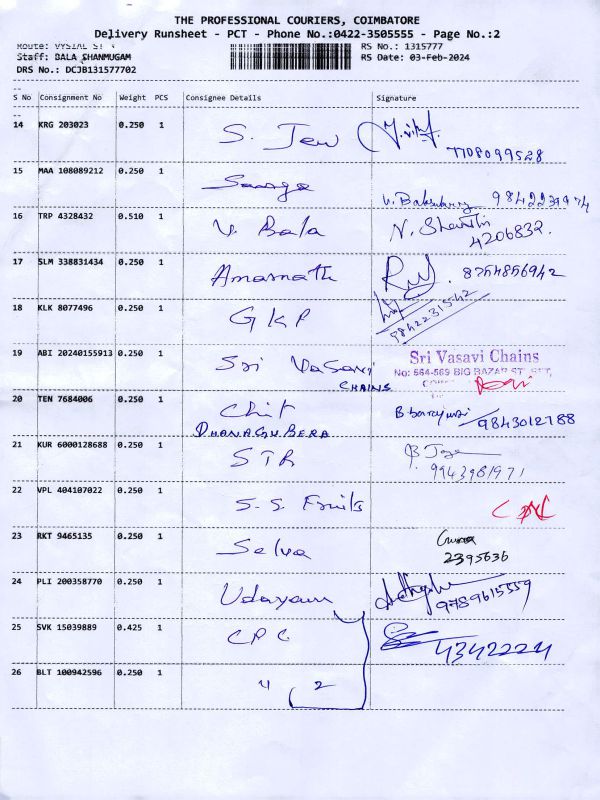 THE PROFESSIONAL COURIERS, COIMBATORE
Delivery Runsheet - PCT - Phone No.:0422-3505555 - Page No.:2
Route: VYSIAL ST
RS No.: 1315777
Staff: BALA SHANMUGAM
RS Date: 03-Feb-2024
DRS No.: DCJB131577702
S No Consignment No Weight PCS Consignee Details Signature
14 KRG 203023 0.250 1 S. Jew
7708099528
15 MAA 108089212 0.250 1
9842239974
16 TRP 4328432 0.510 1 V. Bala N. Shanthi
4206832.
17 SLM 338831434 0.250 1 Amarnath 8754856942
18 KLK 8077496 0.250 1 GKP
9842231542
19 ABI 20240155913 0.250 1 Sri Vasavi Sri Vasavi Chains
CHAINS No: 564-569 BIG BAZAR
20 TEN 7684006 0.250 1 Chit 9843012788
DHANAGUBERA
21 KUR 6000128688 0.250 1 STR
9943981971
22 VPL 404107022 0.250 1 S.S. Fruits
23 RKT 9465135 0.250 1 Selva
2395636
24 PLI 200358770 0.250 1 Udayam 9789615559
25 SVK 15039889 0.425 1 CPC 4342224
26 BLT 100942596 0.250 1 " 2